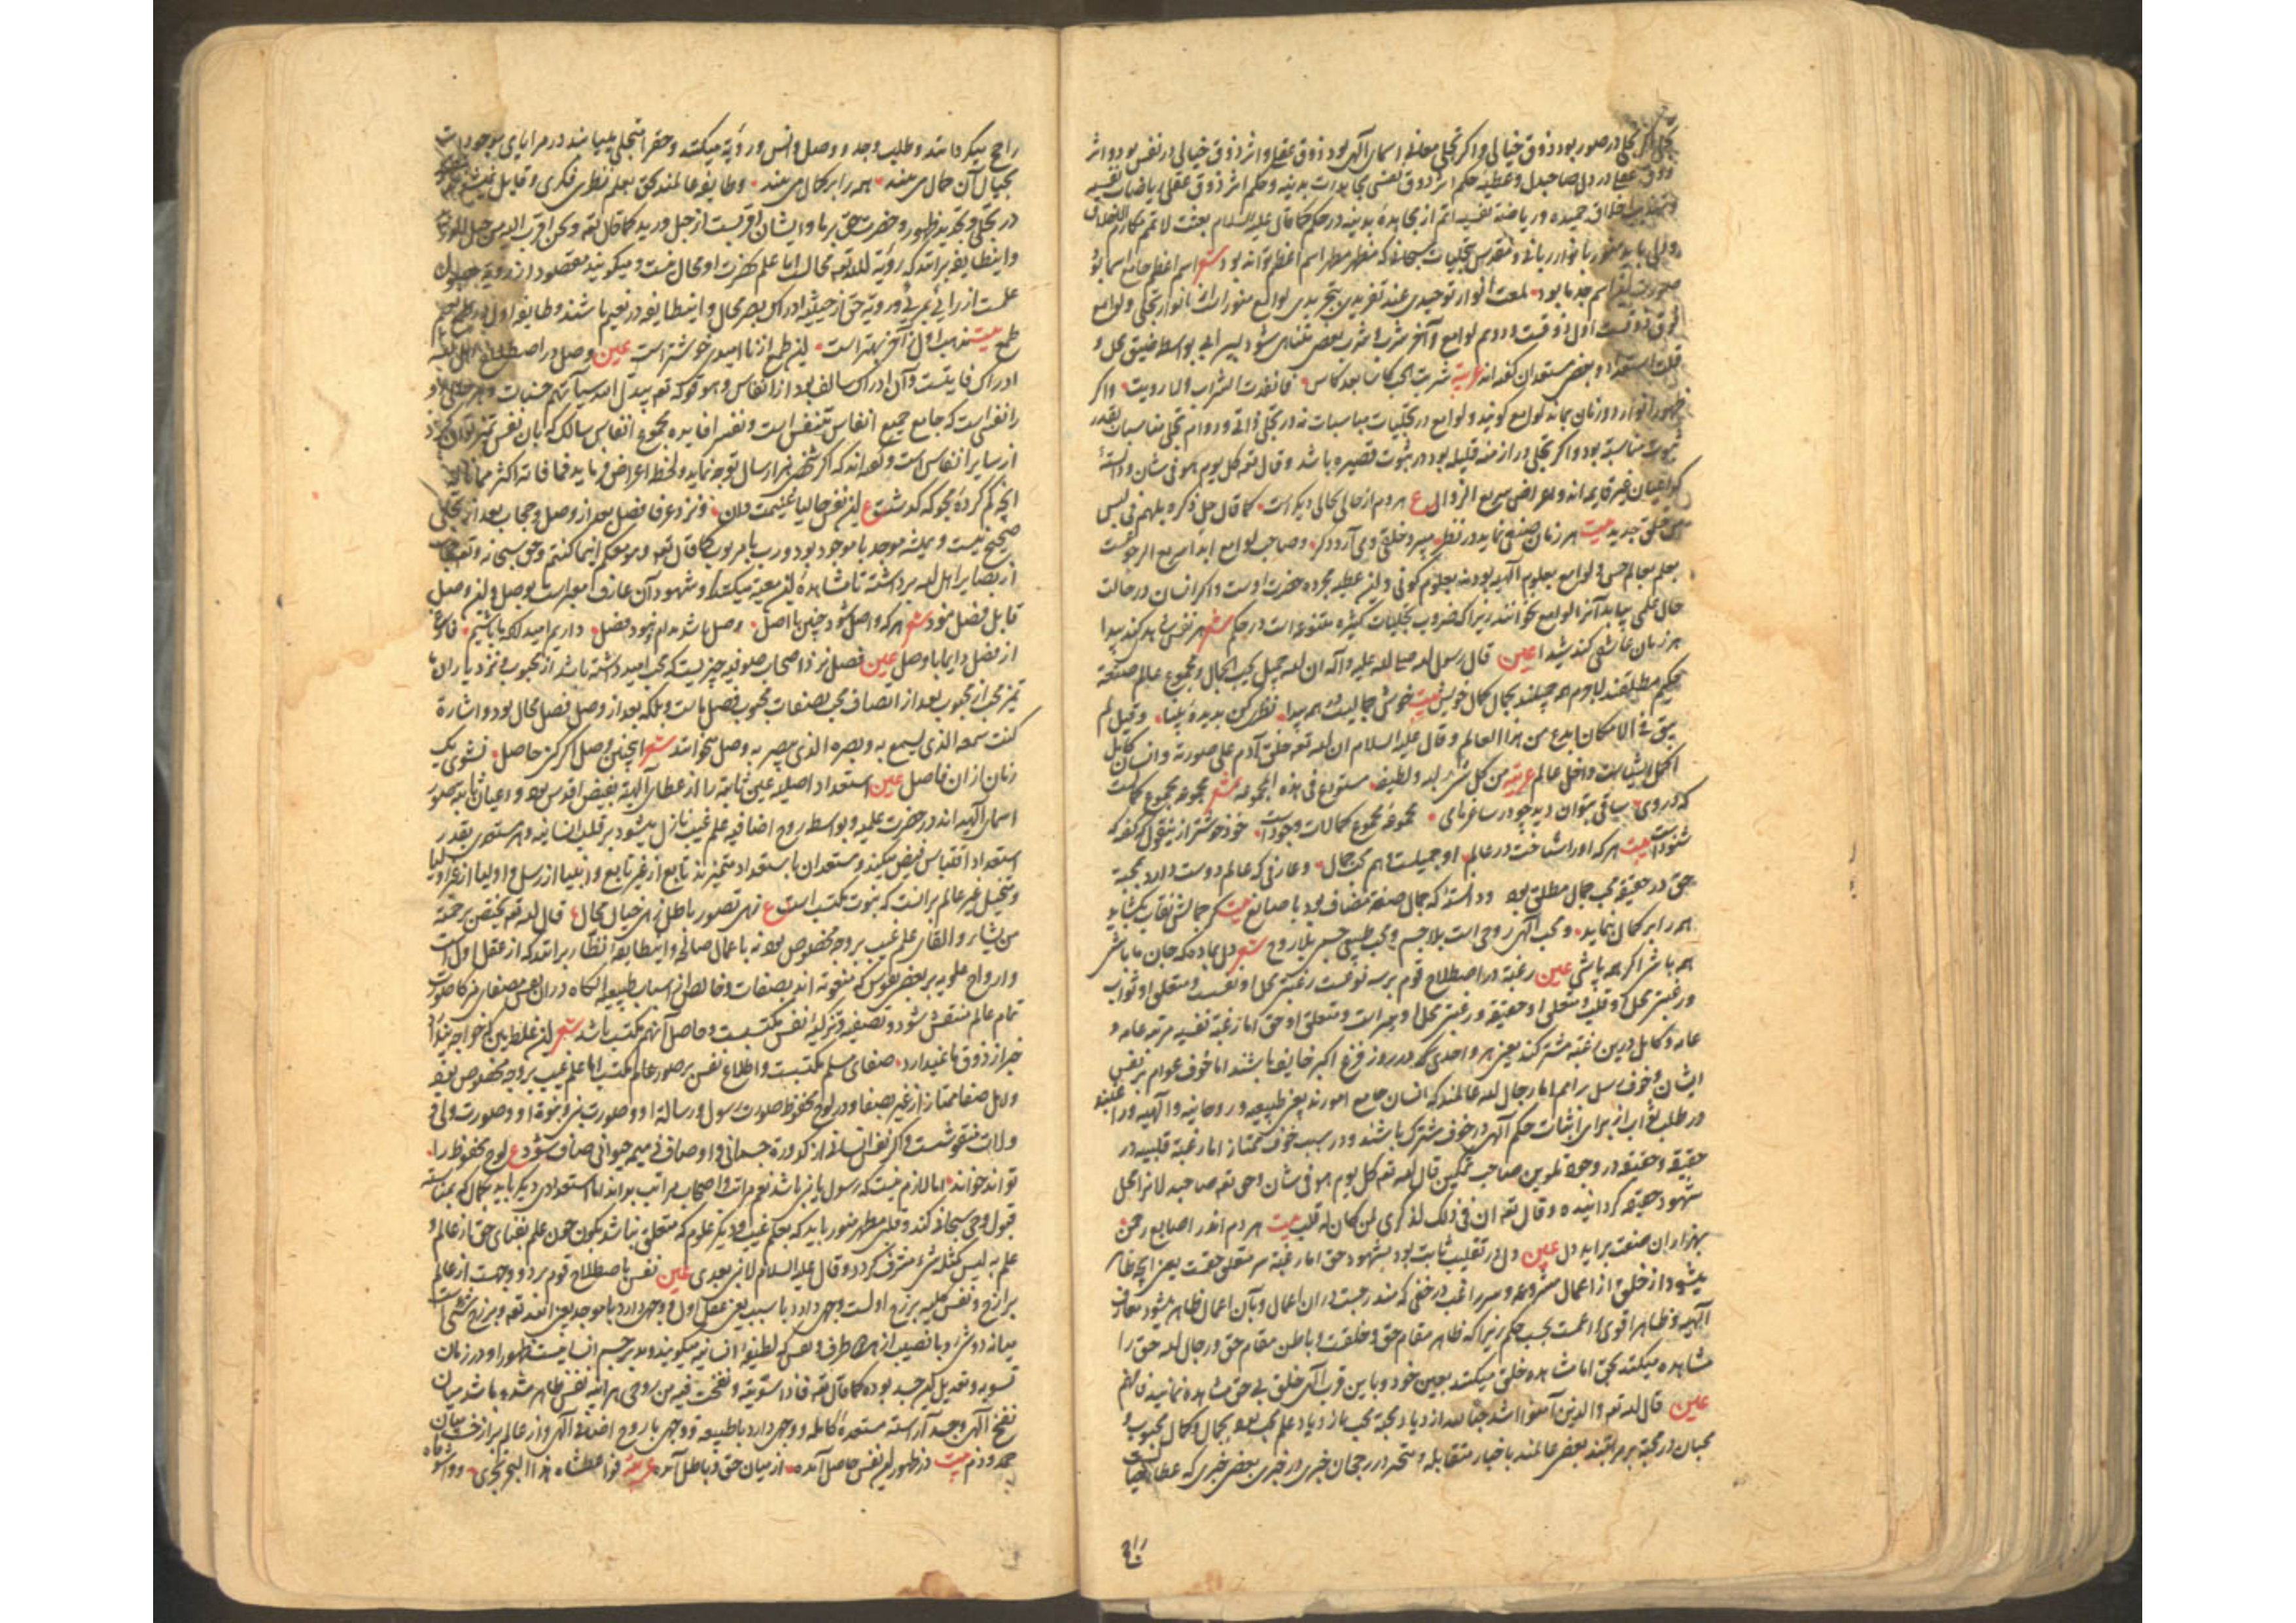 تجلی اگر تجلی در صور بود ذوق خیالی و اگر تجلی معانی اسمای الٓهی بود ذوق عقلی و اثر ذوق خیالی در نفس بود و اثر
ذوق عقلی در دل صاحبدل و عطیهٔ حکم اثر ذوق نفسی مجاهدات بدنیه و حکم اثر ذوق عقلی ریاضات نفسیه
اخلاق حمیده و ریاضة نفسیه اتم از مجاهدهٔ بدنیه در حکم کما قال علیه السلام بعثت لاتمم مکارم الاخلاق
و دلی باید منور بانوار ربانی و مقدس تجلیات سبحانی که مظهر اسم اعظم تواند بود شعر اسم اعظم جامع اسما بود
صورت اسم بود لمعت انوار توحیدی عند تفریدی بتجریدی لوامع منورات بانوار تجلی و لوامع
فوق ذوقست اول ذوقست و دوم لوامع و آخر شرب و شرب بعضی متناهی شود بسیرابی بواسطه ضیق محل و
قلت استعداد و بعضی مستعدان گفته‌اند عربیة شربت الحب کاسا بعد کاس فما نفدت الشراب و لا رویت و اگر
ظهور انوار دو زمان بماند لوامع گویند و لوامع در تجلیات مناسبات نه در تجلی ذاتی و دوام تجلی مناسبات بقدر
ثبوت مناسبة بود و اگر تجلی در ازمنه قلیله بود در ثبوت قصیره باشد و قال تعه کل یوم هو فی شان و دانستهٔ
که اعیان غیر قایم‌اند و اعراض سریع الزوال ع هر دم از حالی بحالی دیگر است کما قال جل ذکره بل هم فی لبس
من خلق جدید بیت هر زمان صنفی نماید در نظر میبرد خلقی و می‌آرد دگر و صاحب لوامع ابدا سریع الرجوعست
بعلم بعالم حس و لوامع بعلوم الٓهیه بود نه بعلوم کونی و این عطیه مجرده حضرت اوست و اگر انسان در حالت
حال علمی بیابد آنرا لوامع نخوانند زیرا که ضروب تجلیات کثیره متنوعه است در حکم شعر هر نفس
هر زمان عاشقی کند شیدا عین قال رسول لله صلی لله علیه و آله ان لله جمیل یحب الجمال و مجموع عالم صنعة
حکیم مطلقند لاجرم همه جمیلند بجمال کمال خویش بیت خوش جمالیست در همه پیدا نظری کن بدیدهٔ بینا و قیل لم
یبق فی الامکان ابدع من هذا العالم و قال علیه السلام ان لله تعه خلق آدم علی صورته و انسان کامل
اکمل اشیاست و اخل عالم عربیة من کل شیء لبه و لطیفه مستودع فی هذه المجموعة شعر مجموعه مجموع کمالست
که در وی ساقی بتوان دید چو در ساغر مای مجموعهٔ مجموع کمالات وجود است خود خوشتر ازین قول که گفته که
شنود است بیت هر که او را شناخت در عالم او جمیلست هم محب جمال و عارفی که عالم دوست دارد بمحبة
حق در حقیقه محب جمال مطلق بود و دانستهٔ که جمال صنعة مضاف بود با صانع بیت گر جمالش نقاب بگشاید
همه را بر کمال بنماید و محب الٓهی روحی است بلا جسم و محب طبیعی جسمی بلا روح شعر دلی بما ده که جان ما باشی
همه باشی اگر همه باشی عین رغبة در اصطلاح قوم بر سه نوعست رغبتی محل او نفست و متعلق او ثواب
و رغبتی محل او قلب و متعلق او حقیقه و رغبتی محل او سر است و متعلق او حق اما رغبة نفسیه مرتبه عامه و
عامه و کامل درین رغبة مشترکند یعنی هر واحدی که در روز فزع اکبر خایف باشند اما خوف عوام بر نفس
ایشان و خوف رسل بر امم اما رجال لله عالمند که انسان جامع امورند یعنی طبیعیه و روحانیه و الٓهیه و رغبتند
در طلب ثواب از برای اثبات حکم الٓهی در خوف مشترک باشند و در سبب خوف ممتاز اما رغبة قلبیه در
حقیقه و حقیقه در وجود تلوین صاحب تمکین قال لله تعه کل یوم هو فی شان و حق تعه صاحبدلانرا محل
شهود حقیقه گردانیده و قال تعه ان فی ذلک لذکری لمن کان له قلب بیت هر دم اندر اصابع رحمن
بهزاران صفت براید دل عین دل در تقلیب ثابت بود بشهود حق اما رغبة سر متعلق حقست یعنی آنچه ظاهر
میشود از خلق از اعمال مشروعه و سر راغب در حقی که مندرجست در ان اعمال و بآن اعمال ظاهر میشود معارف
الٓهیه و ظاهرا قوی و اعمست بحسب حکم زیرا که ظاهر مقام حق و خلقست و باطن مقام حق و رجال لله حق را
مشاهده میکنند بحق اما مشاهده خلق میکنند بعین خود و با این قرب الٓهی خلق بی حق مشاهده ننمایند فافهم
عین قال لله تعه و الذین آمنوا اشد حبا لله ازدیاد محبة محب بازدیاد علم محب بود بجمال و کمال محبوب و
محبان در محبة بر مراتبند بعضی عالمند باخبار متقابله و متحیر در رجحان خبری در خبری بعضی خبری که عطا
راجح میگردانند و طلب وجد و وصل و انس و رؤیة میکنند و حق را متجلی مییابند در مرایای موجودات
بجمال آن جمال می‌بینند همه را بر کمال می‌بینند و طایفه عالمند بحق بعلم نظری فکری و قایل
در تجلی و تحدید ظهور و حضرت حق بر ما و ایشان اقربست از حبل ورید کما قال تعه و نحن اقرب الیه من حبل الورید
و این طایفه برانند که رؤیة لله تعه محالست اما علم بحضرت او محال نیست و میگویند مقصود از رؤیة حصول
علمست از رائی بمرئی و رویة حق از حیثیة ادراک بصر محال و این طایفه در نعیم باشند و طایفه اول در طمع
طمع بیت مذهب اول از آخر بهتر است این طمع از ناامیدی خوشتر است عین وصل در اصطلاح اهل لله
ادراک فایتست و آن ادراک سالف بود از انفاس و هو قوله تعه یبدل الله سیئاتهم حسنات و
را نفسی است که جامع جمیع انفاس متنفس است و نفس افایده مجموع انفاس سالک که بآن نفس متمیز توان کرد
از سایر انفاس است و گفته‌اند که اگر شخصی هزار سال توجه نماید و لحظهٔ اعراض فرماید فما فاته اکثر مما ناله
آنچه گم کردهٔ مجو که گذشت ع این نفس حالیا غنیمت دان و نزد عرفا فصل بعد از وصل و حجاب بعد از تجلی
صحیح نیست و همیشه موجد با موجود بود و رب با مربوب کما قال تعه و هو معکم اینما کنتم و حق سبحانه و تعه حجاب
از بصایر اهل لله برداشته تا مشاهدهٔ این معیة میکنند و شهود آن عارف معبر است بوصل و این وصل
قابل فصل نبود شعر هر که واصل شود چنین با اصل وصل باشد مدام نبود فصل داریم امید آنکه باشیم فارغ
از فصل دایما با وصل عین فصل نزد اصحاب صوفیه چیزیست که محب امید داشته باشد از محبوب و نزد یاران ما
تمیز محب از محبوب بعد از اتصاف محب بصفات محبوب فصل باست و بلکه بعد از وصل فصل محال بود و اشارة
کنت سمعه الذی یسمع به و بصره الذی یبصر به وصل میخوانند شعر این چنین وصل اگر کنی حاصل نشوی یک
زمان از ان فاصل عین استعداد اصلیه عین ثابته را از عطای الٓهیة بفیض اقدس بود و اعیان ثابته صور
اسمای الٓهیه‌اند در حضرت علمیه و بواسطه روح اضافیه علم غیب نازل میشود بر قلب انسانیه و هر مستعدی بقدر
استعداد اقتباس فیض میکند و مستعدان باستعداد متمیزند تابع از غیر تابع و انبیا از رسل و اولیا از غیر اولیا
و تخیل غیر عالم برانست که نبوت مکتسب است ع زهی تصور باطل زهی خیال محال قال لله تعه یختص برحمته
من یشاء و القای علم غیب بر وجه مخصوص بود نه باعمال صالح و این طایفه انظار برانند که از عقل اولست
و ارواح علویه بر بعضی نفوس که منعوته‌اند بصفات و خالص از اسباب طبیعیه آنگاه در ان نفس مصفای مزکا صورت
تمام عالم منتقش شود و تصفیه و تزکیهٔ نفس مکتسبست و حاصل آن هم مکتسب باشد شعر این غلط بین که خواجه پندارد
خبر از ذوق ما نمیدارد صفای مسلم مکتسبست و اطلاع نفس بر صور عالم مکتسب اما علم غیب بر وجه مخصوص بود
و اهل صفا ممتاز از غیر بصفا و در لوح محفوظ صورت رسول و رسالة او و صورت نبی و نبوة او و صورت ولی و
ولایت منقوشست و اگر نفس انسانی از کدورة جسمانی و اوصاف ذمیمه حیوانی صاف شود ع لوح محفوظ را
تواند خواند اما لازم نیست که رسول یا نبی باشد نعم مراتب و اصحاب مراتب بداند اما استعدادی دیگر باید بکمال که مناسبة
قبول وحی سبحانی کند و قلبی مطهر منور باید که بعلم غیب و دیگر علوم که متعلق نباشد بکون چون علم بغنای حق از عالم و
علم به لیس کمثله شیء مشرف گردد و قال علیه السلام لا نبی بعدی عین نفس باصطلاح قوم بر دو وجهست از عالم
برازخ و نفس کلیه برزخ اولست وجهی دارد با سبب یعنی عقل اول و وجهی دارد با موجد یعنی الله تعه و برزخ شیئی است
میانه دو شیء و با نصیب از هر دو طرف و نفس که لطیفهٔ انسانیه میگویند مدبر جسم انسانیست ظهور او در زمان
تسویه و تعدیل این جسد بوده کما قال تعه فاذا سویته و نفخت فیه من روحی هراینه نفس ظاهر شده باشد میان
نفخ الٓهی و جسد آراسته مستعدهٔ کامله و وجهی دارد با طبیعه و وجهی با روح اضافی الٓهی و از عالم برازخست میان
حمد و ذم بیت در ظهور این نفس حاصل آمده از میان حق و باطل آمده عربیة